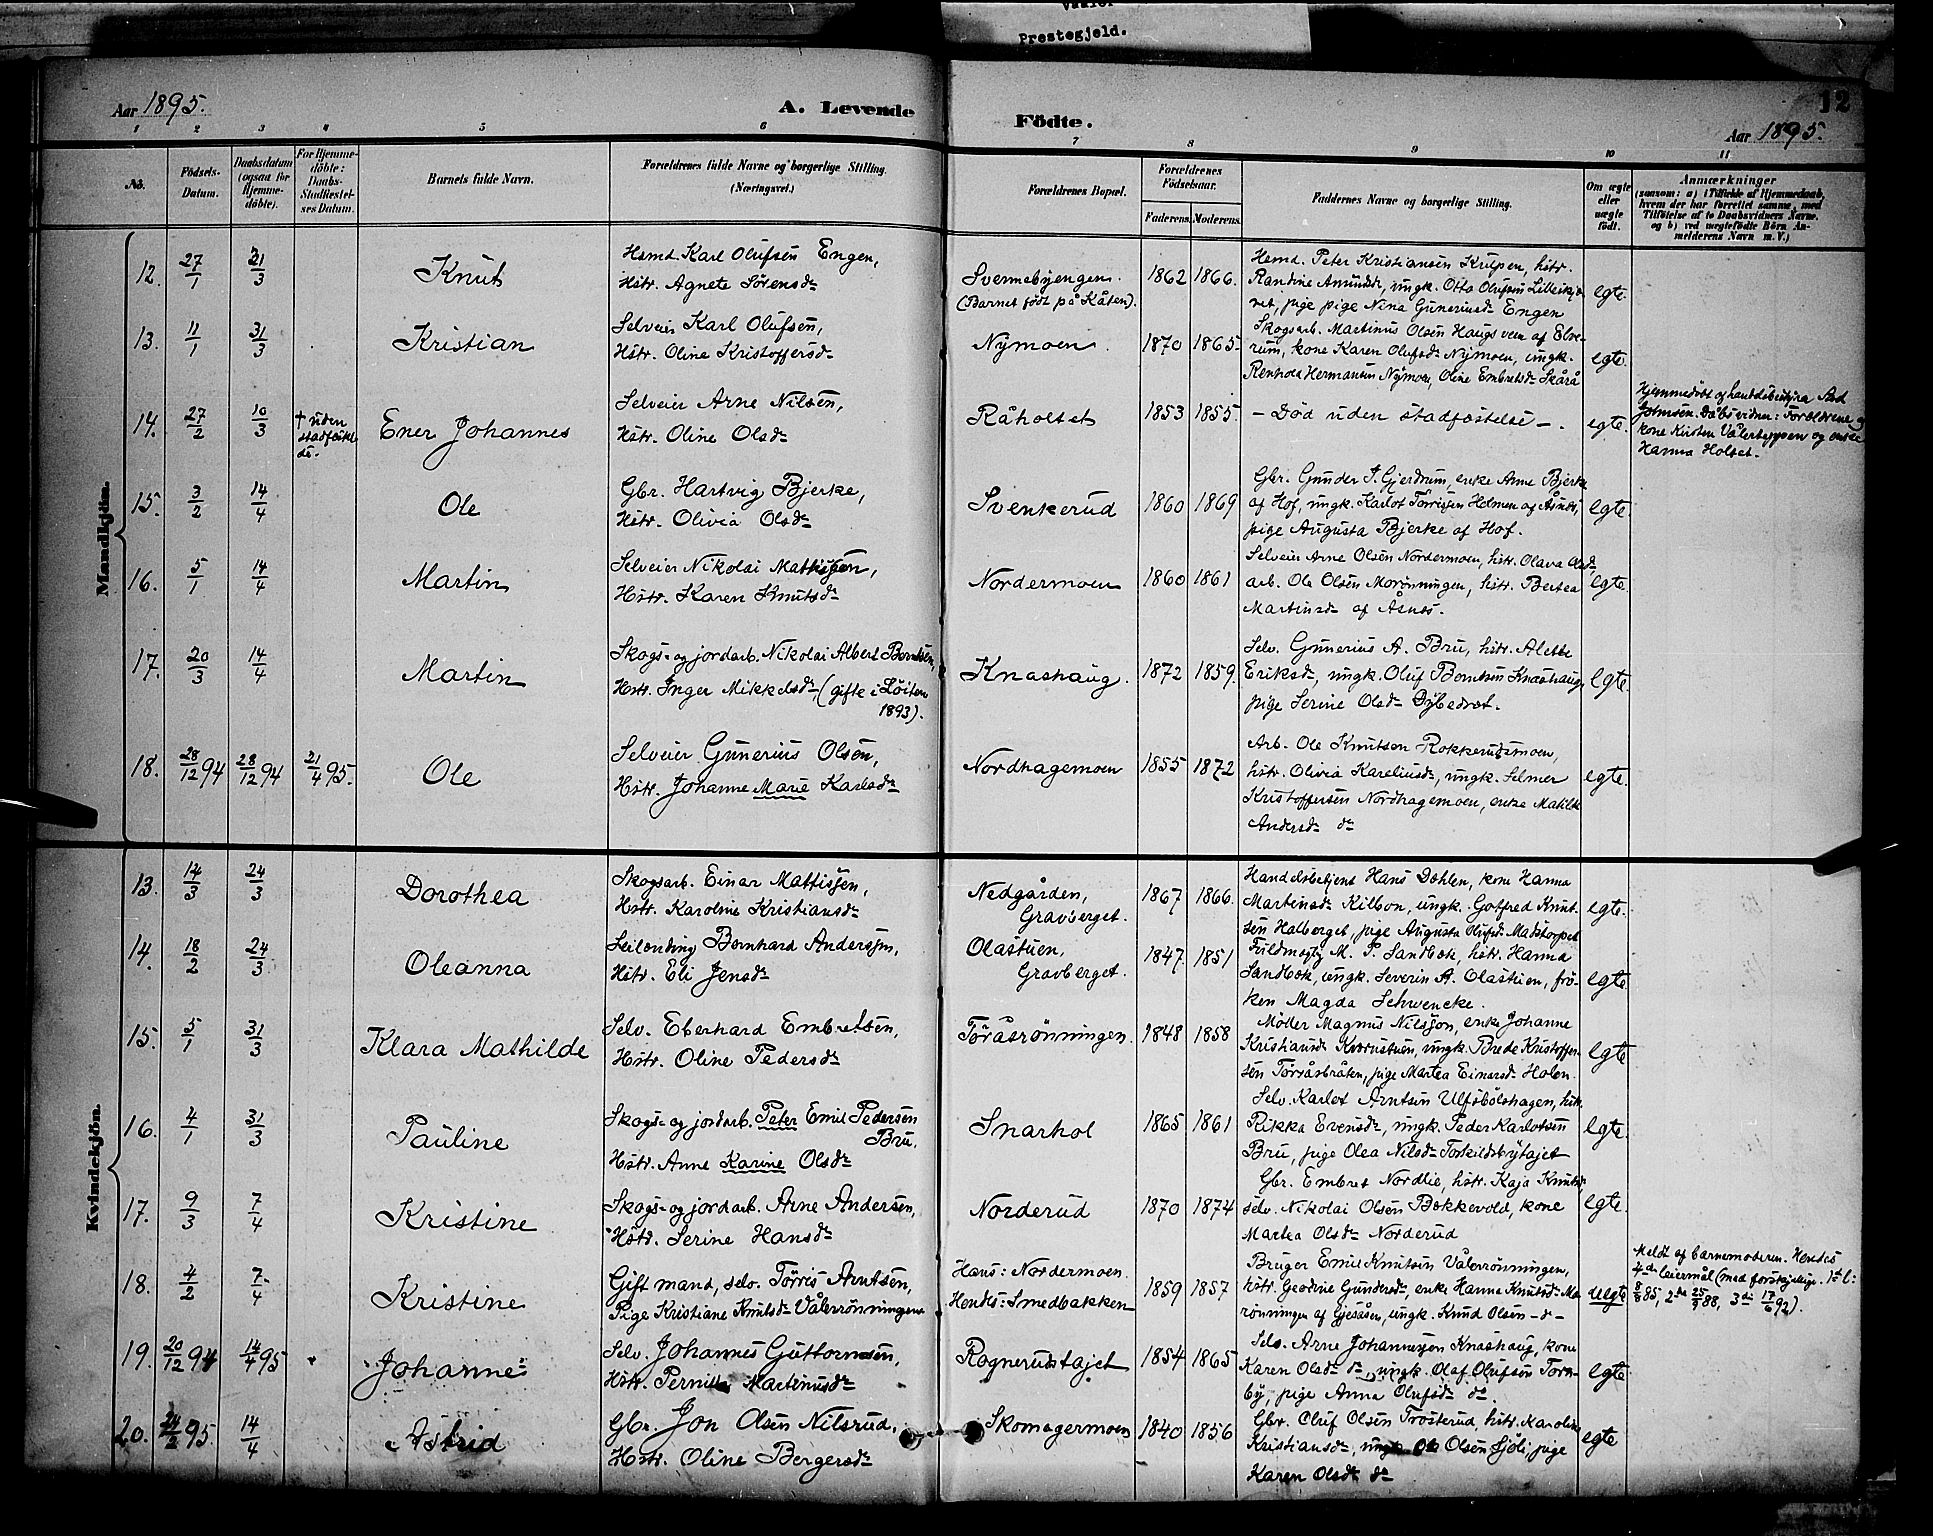 Prestegjeld.
Aar 1895.
A. Levende
Födte.
12
Aar 1895.
1 2 3 4 5 6 7 8 9 10 11
No.
Födsels-
Datum.
Daabsdatum
(ogsaa for
Hjemme-
döbte).
For Hjemme-
döbte:
Daabs-
Stadfæstel-
ses Datum.
Barnets fulde Navn.
Forældrenes fulde Navne og borgerlige Stilling.
(Næringsvei.)
Forældrenes Bopæl.
Forældrenes
Födselsaar.
Faderens. Moderens.
Faddernes Navne og borgerlige Stilling.
Om ægte
eller
uægte
født.
Anmærkninger
(saasom: a) i Tilfælde af Hjemmedaab,
hvem der har forrettet samme, med
Tilföielse af to Daabsvidners Navne.
og b) ved uægtefödte Börn An-
melderens Navn m. V.)
Mandkjön.
12. 27/1 31/3 Knut
Hsmd. Karl Olufsen Engen,
Hstr. Agnete Sörensdr
Svennebyengen.
(Barnet födt på Kåten).
1862 1866.
Hsmd. Peter Kristiansen Kulpen, hstr.
Randine Amundsdr, ungk. Otto Olufsen
Nina Gunneriusdr Engen
egte.
13. 11/1 31/3 Kristian
Selveier Karl Olufsen,
Hstr. Oline Kristoffersdr
Nymoen
1870 1865.
Skogsarb. Martinus Olsen Haugsveen af Elve-
rum, kone Karen Olufsdr Nymoen, ungk.
Renhold Hermansen Nymoen, Oline Embretsdr Skårå
egte.
14. 27/2 10/3 † uden
stadfæstel
se.
Ener Johannes
Selveier Arne Nilsen,
Hstr. Oline Olsdr
Råholtet
1853 1855.
– Död uden stadfæstelse –.
egte.
Hjemmedöbt af handelsbestyrer
Johnsen. Dåbsvidner: Forældrene og
kone Kirsten og enke
Hanna Holset.
15. 3/2 14/4 Ole
Gbr. Hartvig Bjerke,
Hstr. Olivia Olsdr
Svenkerud
1860 1869
Gbr. Gunder J. Gjerdrum, enke Anne Bjerke
af Hof, ungk. Karlot Torrissen Holmen af Åsnes,
pige Augusta Bjerke af Hof.
egte.
16. 5/1 14/4 Martin
Selveier Nikolai Mathisen,
Hstr. Karen Knutsdr
Nordermoen
1860 1861
Selveier Arne Olsen Nordermoen, hstr. Olava Olsdr
arb. Ole Olsen Morönningen, hstr. Bertea
Martinsdr af Åsnes.
egte.
17. 20/3 14/4 Martin
Skogs- og jordarb. Nikolai Albert Berntsen,
Hstr. Inger Mikkelsdr, (gifte i Löiten
1893).
Knashaug.
1872 1859.
Selv. Gunerius A. Bru, hstr. Alette
Eriksdr, ungk. Oluf Berntsen Knashaug,
pige Serine Olsdr
egte.
18. 28/12 94 28/12 94 21/4 95. Ole
Selveier Gunerius Olsen,
Hstr. Johanne Marie Karlsdr
Nordhagemoen
1855 1872
Arb. Ole Knutsen Rokkerudsmoen,
hstr. Olivia Kareliusdr, ungk. Selmer
Kristoffersen Nordhagemoen, enke Matilde
Andersdr do
egte.
Kvindekjön.
13. 14/3 24/3 Dorothea
Skogsarb. Einar Mattissen,
Hstr. Karoline Kristiansdr
Nedgården,
Gravberget.
1867 1866.
Handelsbetjent Hans Dæhlen, kone Hanna
Martinsdr Kilbon, ungk. Gotfred Knut-
sen Halberget, pige Augusta Olufsdr Madstorpet
egte.
14. 18/2 24/3 Oleanna
Leilending Bernhard Anderssen,
Hstr. Eli Jensdr
Olastuen,
Gravberget.
1847 1851
Fuldmægtig M. P. Sandbæk, hstr. Hanna
Sandbæk, ungk. Severin A. Olastuen, frö-
ken Magda Schwencke.
egte.
15. 5/1 31/3 Klara Mathilde
Selv. Eberhard Embretsen,
Hstr. Oline Pedersdr
Töråsrönningen.
1848 1858
Möller Magnus Nilsson, enke Johanne
Kristiansdr Kvernstuen, ungk. Brede Kristoffer-
sen Töråsbråten, pige Martea Einarsdr Holen.
egte.
16. 4/1 31/3 Pauline
Skogs- og jordarb. Peter Emil Pedersen
Bru,
Hstr. Anne Karine Olsdr
Snarhol
1865 1861
Selv. Karlot Arntsen Ulfsbölshagen, hstr.
Rikka Evensdr, ungk. Peder Karlotsen
Bru, pige Olea Nilsdr Torkildsbytajet
egte.
17. 9/3 7/4 Kristine
Skogs- og jordarb. Arne Andersen,
Hstr. Serine Hansdr
Norderud
1870 1874
Gbr. Embret Nordlie, hstr. Kaja Knutsdr,
selv. Nikolai Olsen Bekkevold, kone
Martea Olsdr Norderud
egte.
18. 4/2 7/4 Kristine
Gift mand, selv. Törris Arntsen,
Pige Kristiane Knutsdr Vålerrönningen
Hans: Nordermoen.
Hendes: Smedbakken
1859 1857
Bruger Emil Knutsen Vålerrönningen,
hstr. Geodine Gundersdr, enke Hanna Knutsdr Mo-
rönningen af Gjesåsen, ungk. Knud Olsen – do –
uegte
Meldt af barnemoderen. Hendes
4de leiermål (med forskjellige. 1ste l:
8/8 85, 2det 25/9 88, 3die 17/6 92).
19. 20/12 94 14/4 95 Johanne
Selv. Johannes Guttormsen,
Hstr. Pernille Martinusdr
Rognerudstajet
1854 1865
Selv. Arne Johannessen Knashaug, kone
Karen Olsdr do, ungk. Olaf Olufsen Torn-
by, pige Anna Olufsdr do.
egte
20. 24/2 95. 14/4 Astrid
Gbr. Jon Olsen Nilsrud,
Hstr. Oline Bergersdr
Skomagermoen
1840 1856
Gbr. Oluf Olsen Trösterud, hstr. Karoline
Kristiansdr, ungk. Ole Olsen Sjöli, pige
Karen Olsdr do
egte